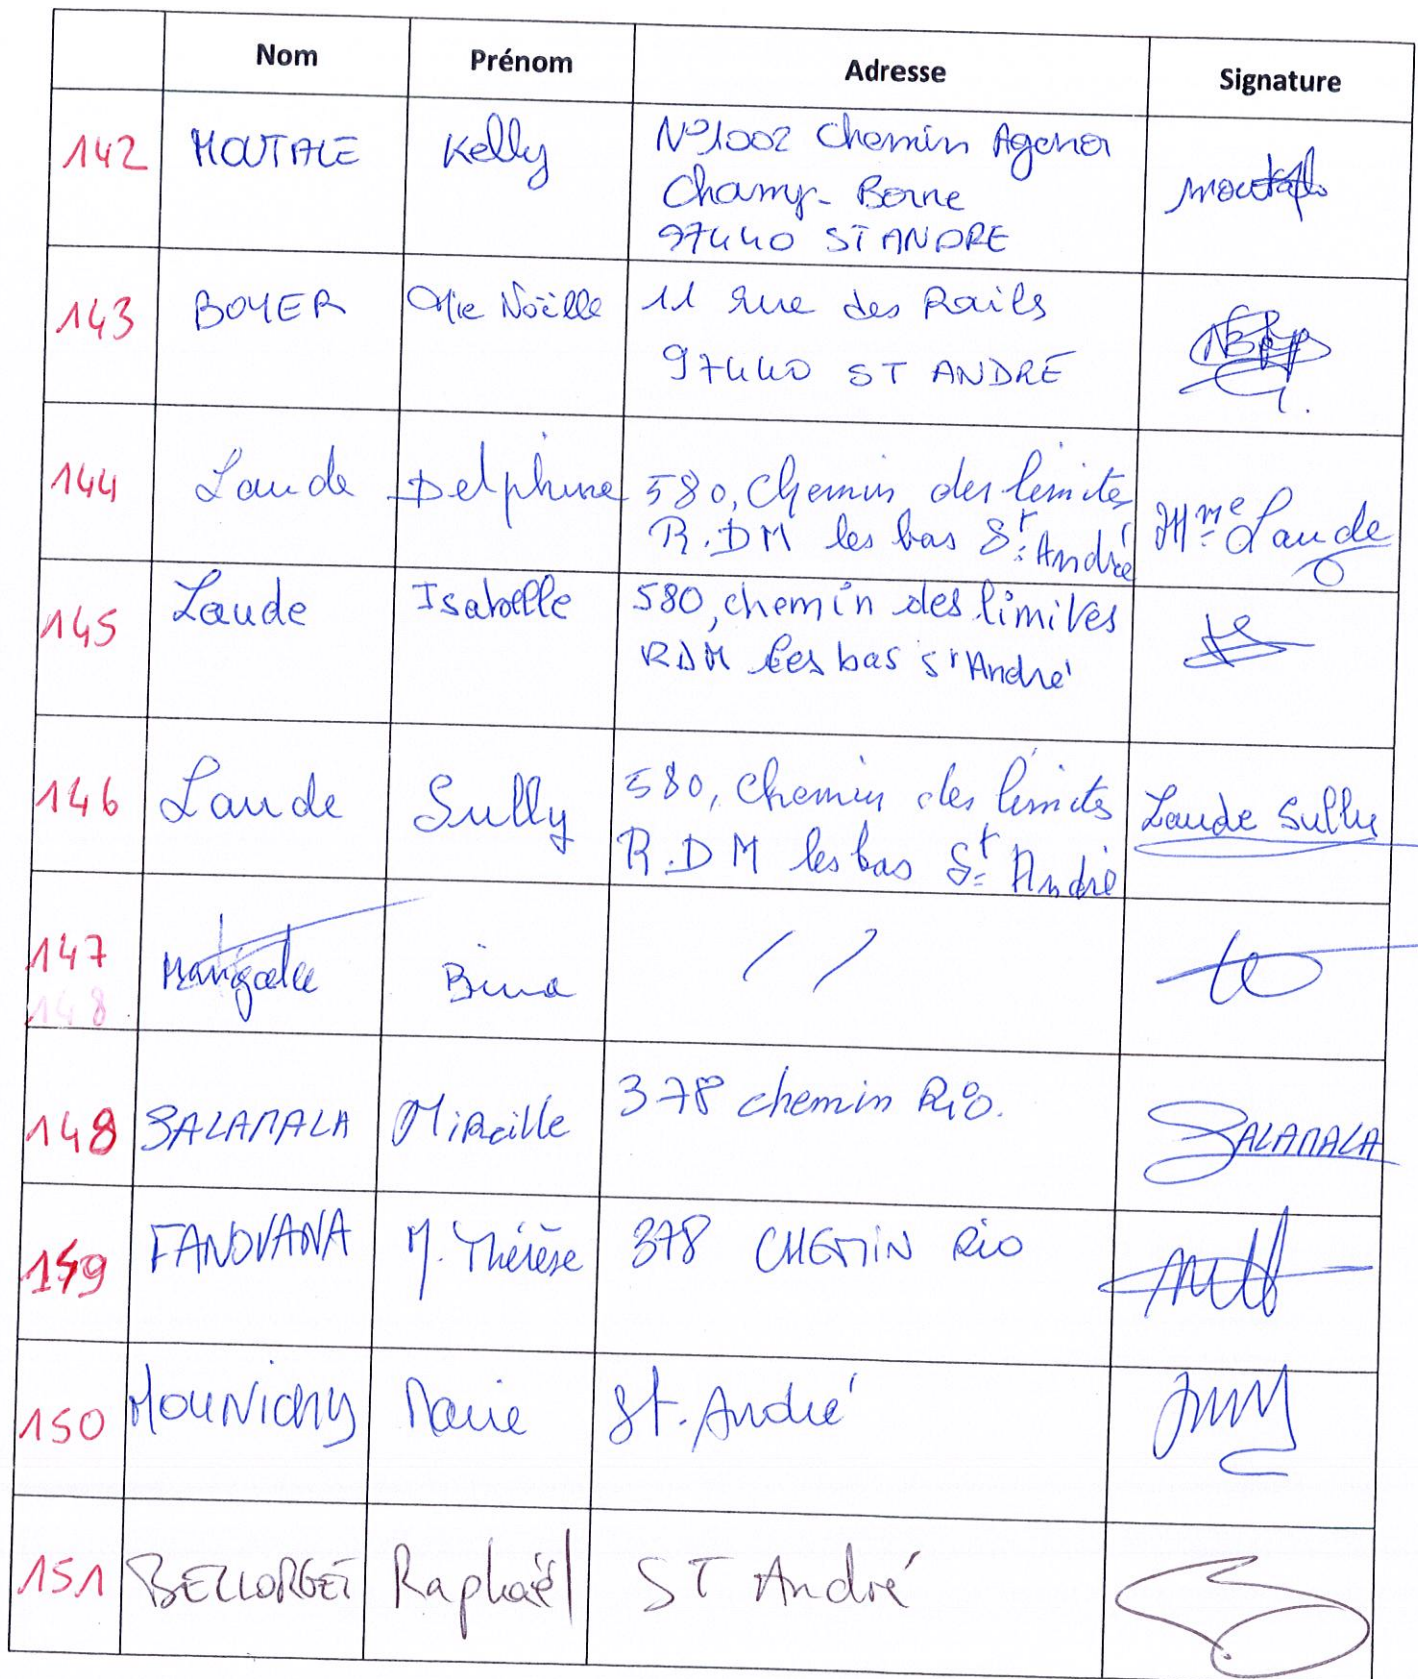 Nom Prénom Adresse Signature
142 MOUTALE Kelly N°1002 Chemin Agenor
Champ-Borne
97440 ST ANDRE
143 BOYER Mie Noëlle 11 rue des Rails
97440 ST ANDRE
144 Laude Delphine 580, Chemin des limites
R.DM les bas St André Mme Laude
145 Laude Isabelle 580, chemin des limites
RDM les bas St André
146 Laude Sully 580, chemin des limites Laude Sully
R.DM les bas St André
147 Bina / /
148
148 SALAMALA Mireille 378 chemin Rio. SALAMALA
149 FANOVANA M. Thérèse 378 CHEMIN Rio
150 MOUNICHY Marie St. André
151 Raphaël ST André